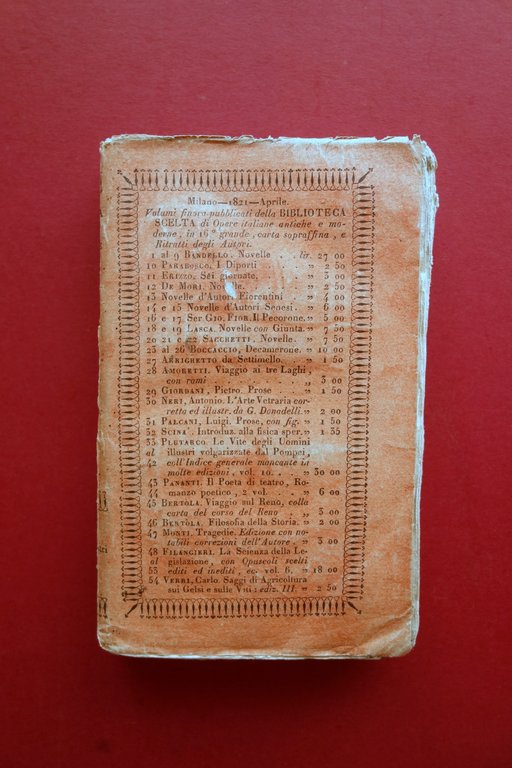 Milano—1821—Aprile.
Volumi finora pubblicati della BIBLIOTECA
SCELTA di Opere italiane antiche e mo-
derne, in 16° grande, carta sopraffina, e
Ritratti degli Autori.
1 al 9 BANDELLO. Novelle . . lir. 27 00
10 PARABOSCO, I Diporti . . " 2 50
11 ERIZZO. Sei giornate. . . " 3 00
12 DE MORI. Novelle. . " 2 50
13 Novelle d'Autori Fiorentini . " 4 00
14 e 15 Novelle d'Autori Senesi . " 6 00
16 e 17 SER GIO. FIOR. Il Pecorone. " 5 00
18 e 19 LASCA. Novelle con Giunta. " 7 50
20 21 e 22 SACCHETTI. Novelle . " 7 50
23 al 26 BOCCACCIO, Decamerone. " 10 00
27 ARRIGHETTO da Settimello. . " 1 50
28 AMORETTI. Viaggio ai tre Laghi,
con rami . . . . " 3 00
29 GIORDANI, Pietro. Prose . . " 1 50
30 NERI, Antonio. L'Arte Vetraria cor-
retta ed illustr. da G. Donadelli. " 2 00
31 PALCANI, Luigi. Prose, con fig. " 1 50
32 SCINA'. Introduz. alla fisica sper. " 1 35
33 PLUTARCO. Le Vite degli Uomini
al illustri volgarizzate dal Pompei,
42 coll'Indice generale mancante in
molte edizioni, vol. 10. . . " 30 00
43 PANANTI. Il Poeta di teatro, Ro-
44 manzo poetico, 2 vol. . . " 6 00
45 BERTOLA. Viaggio sul Reno, colla
carta del corso del Reno . . " 3 00
46 BERTOLA. Filosofia della Storia. " 2 00
47 MONTI. Tragedie. Edizione con no-
tabili correzioni dell'Autore. . " 3 00
48 FILANGIERI. La Scienza della Le-
al gislazione, con Opuscoli scelti
53 editi ed inediti, ec. vol. 6. " 18 00
54 VERRI, Carlo. Saggi di Agricoltura
sui Gelsi e sulle Viti: ediz. III. " 2 50